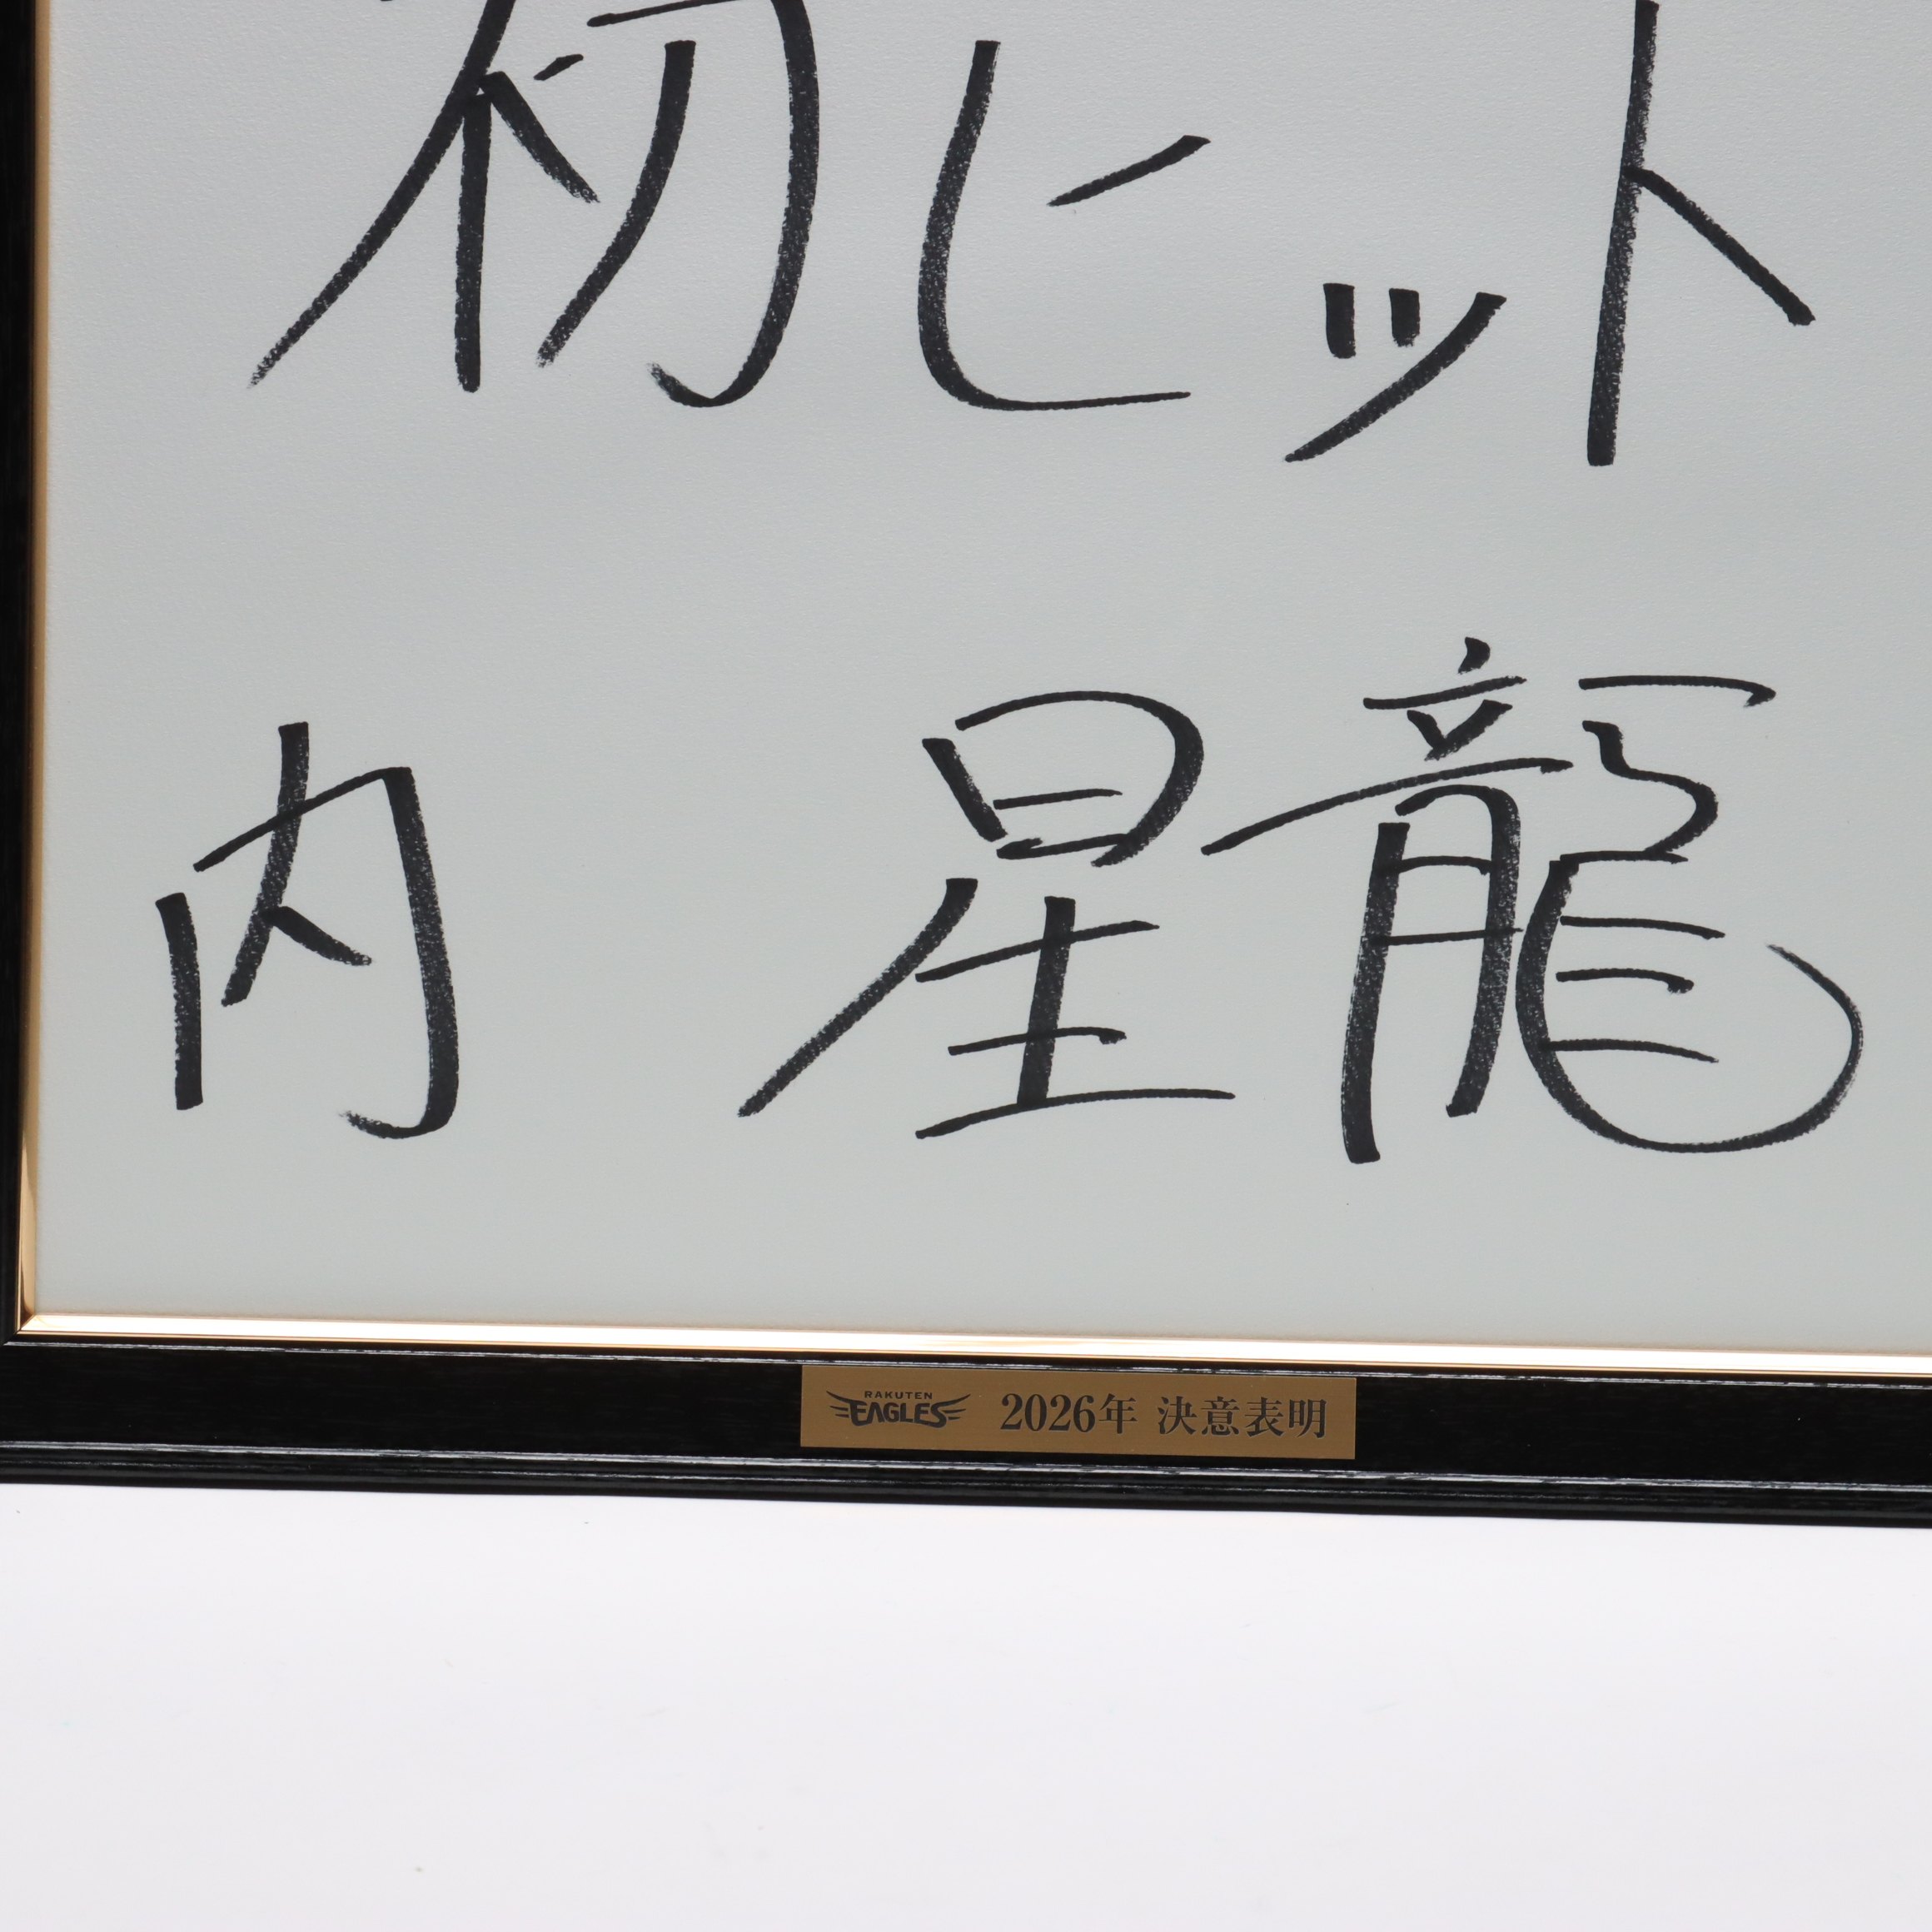 初ヒット
内 星龍
RAKUTEN
EAGLES 2026年 決意表明